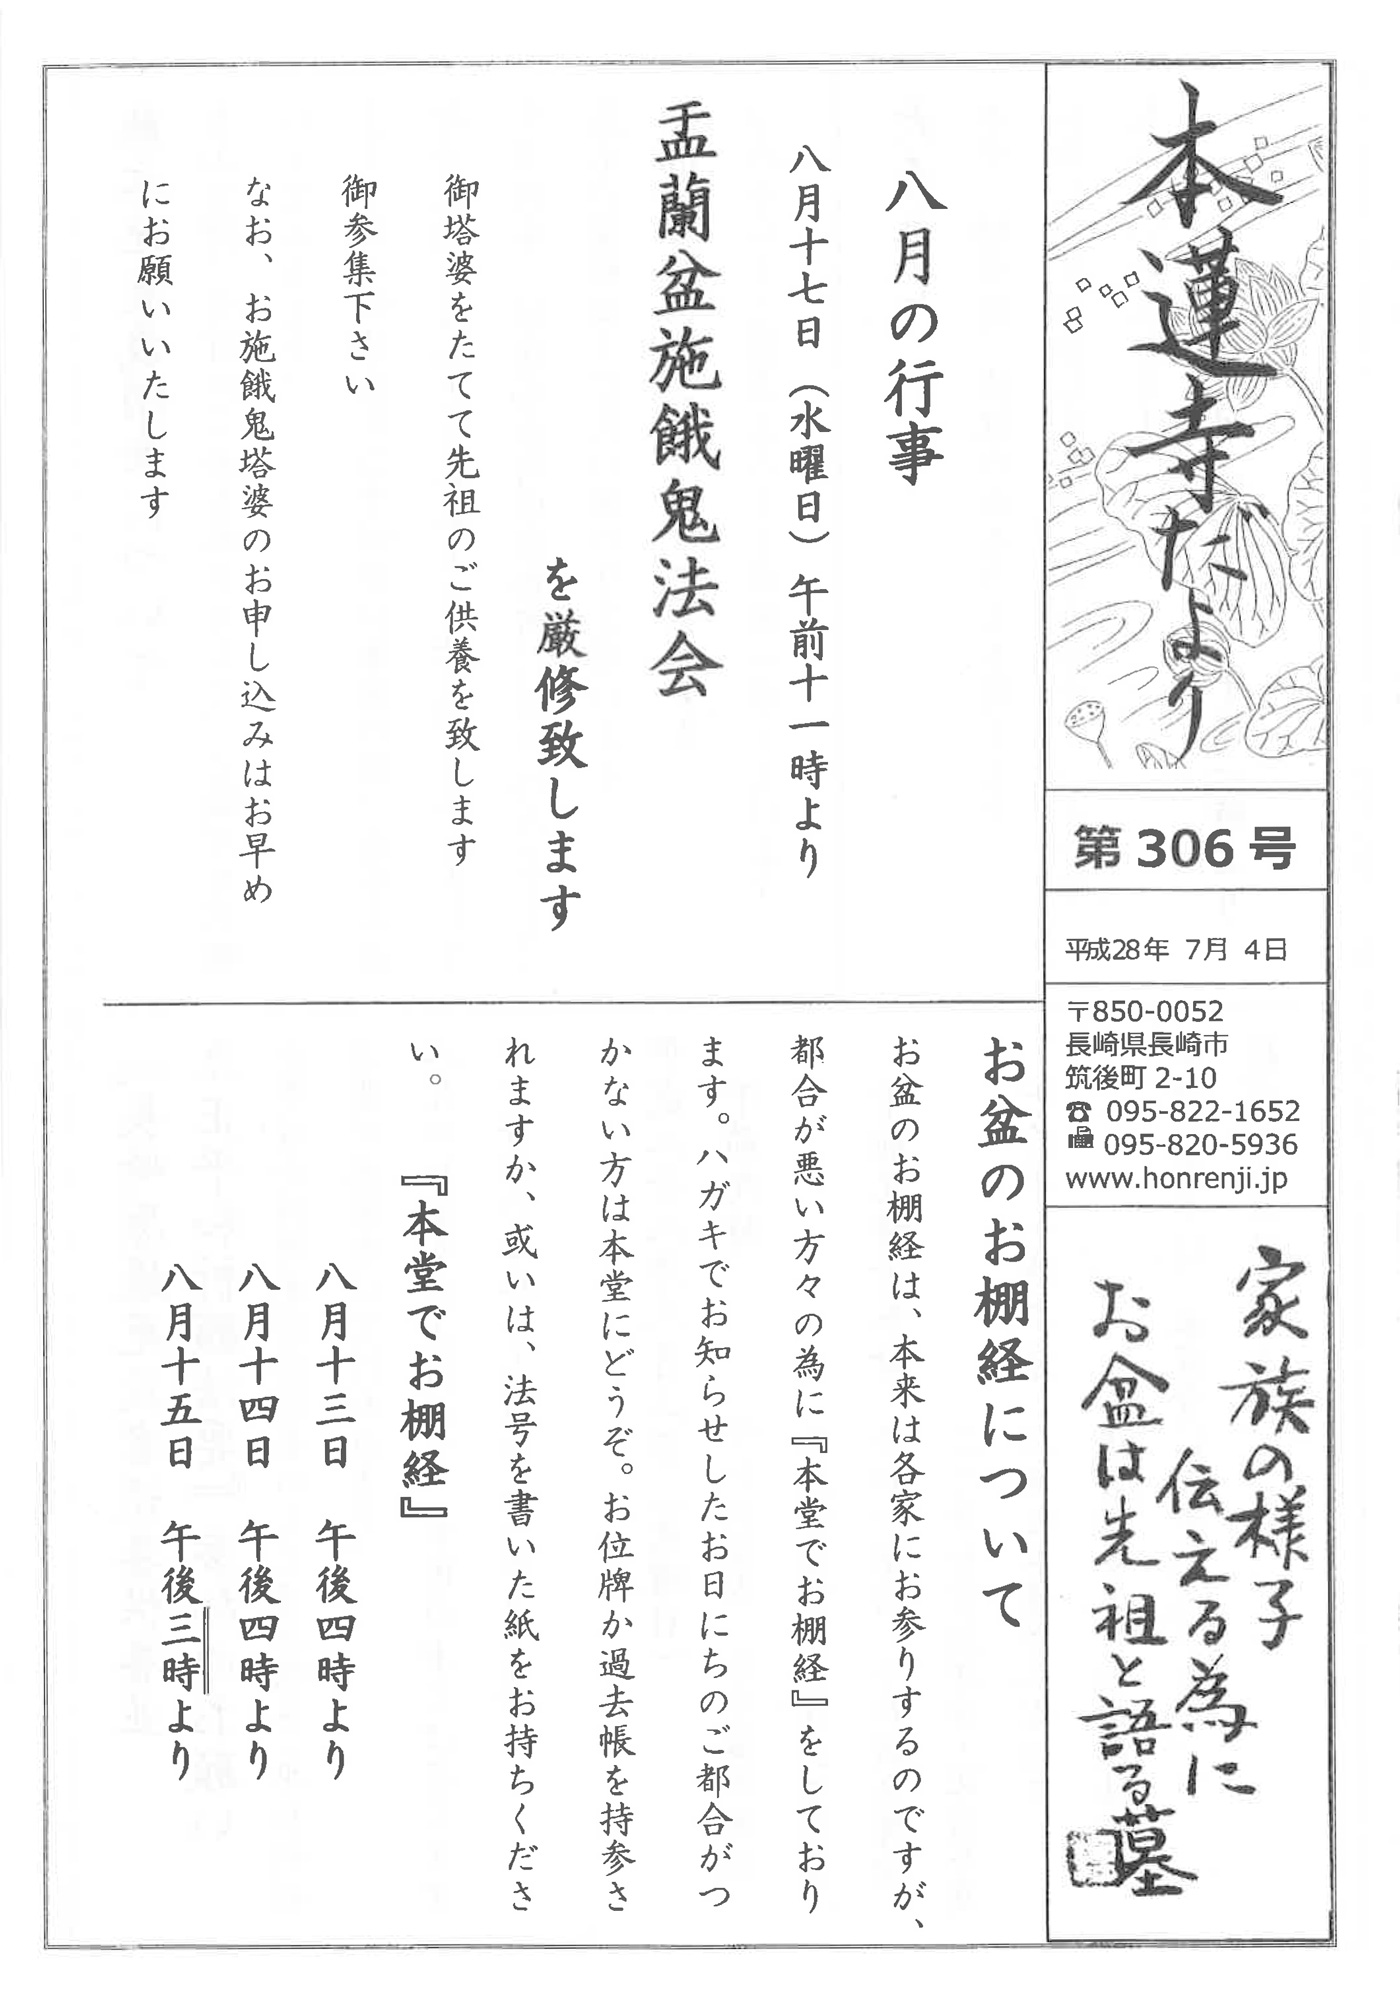 本蓮寺だより
第306号
平成28年 7月 4日
〒850-0052
長崎県長崎市
筑後町 2-10
☎ 095-822-1652
095-820-5936
www.honrenji.jp
家族の様子
伝える為に
お盆は先祖と語る墓
八月の行事
八月十七日（水曜日）午前十一時より
盂蘭盆施餓鬼法会
を厳修致します
御塔婆をたてて先祖のご供養を致します
御参集下さい
なお、お施餓鬼塔婆のお申し込みはお早め
にお願いいたします
お盆のお棚経について
お盆のお棚経は、本来は各家にお参りするのですが、
都合が悪い方々の為に『本堂でお棚経』をしており
ます。ハガキでお知らせしたお日にちのご都合がつ
かない方は本堂にどうぞ。お位牌か過去帳を持参さ
れますか、或いは、法号を書いた紙をお持ちくださ
い。
『本堂でお棚経』
八月十三日 午後四時より
八月十四日 午後四時より
八月十五日 午後三時より